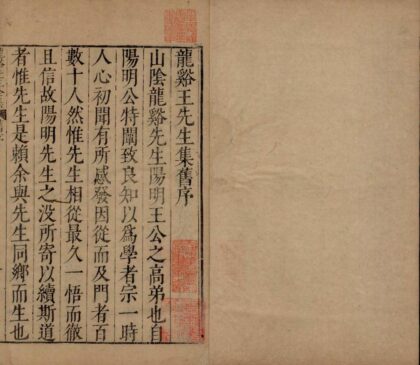 龍谿王先生集舊序
山陰龍谿先生陽明王公之高弟也自
陽明公特闡致良知以爲學者宗一時
人心初聞有所感發因從而及門者百
數十人然惟先生相從最久一悟而徹
且信故陽明先生之没所寄以續斯道
者惟先生是賴余與先生同鄉而生也